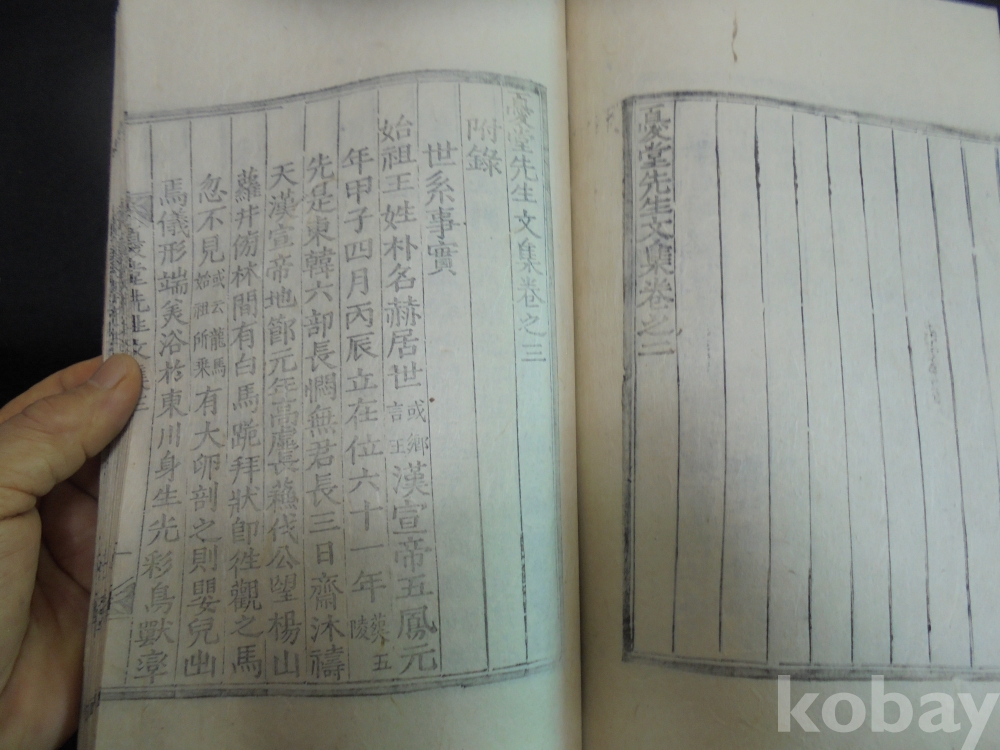 憂堂先生文集卷之二
憂堂先生文集卷之三
附錄
世系事實
始祖王姓朴名赫居世或鄉言王漢宣帝五鳳元
年甲子四月丙辰立在位六十一年葬五陵
先是東韓六部長憫無君長三日齋沐禱
天漢宣帝地節元年高墟長蘇伐公望楊山
蘿井傍林間有白馬跪拜狀卽徃觀之馬
忽不見或云龍馬始祖所乘有大卵剖之則嬰兒出
焉儀形端美浴於東川身生光彩鳥獸率
kobay